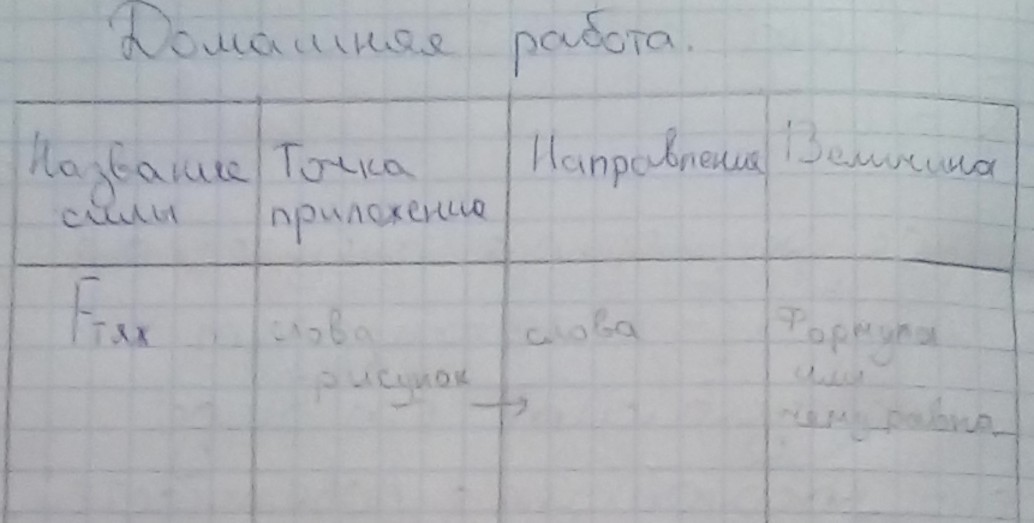 Домашняя работа.
Название Точка Направление Величина
силы приложения
Fтяж слова слова Формула
рисунок → или
чему равна